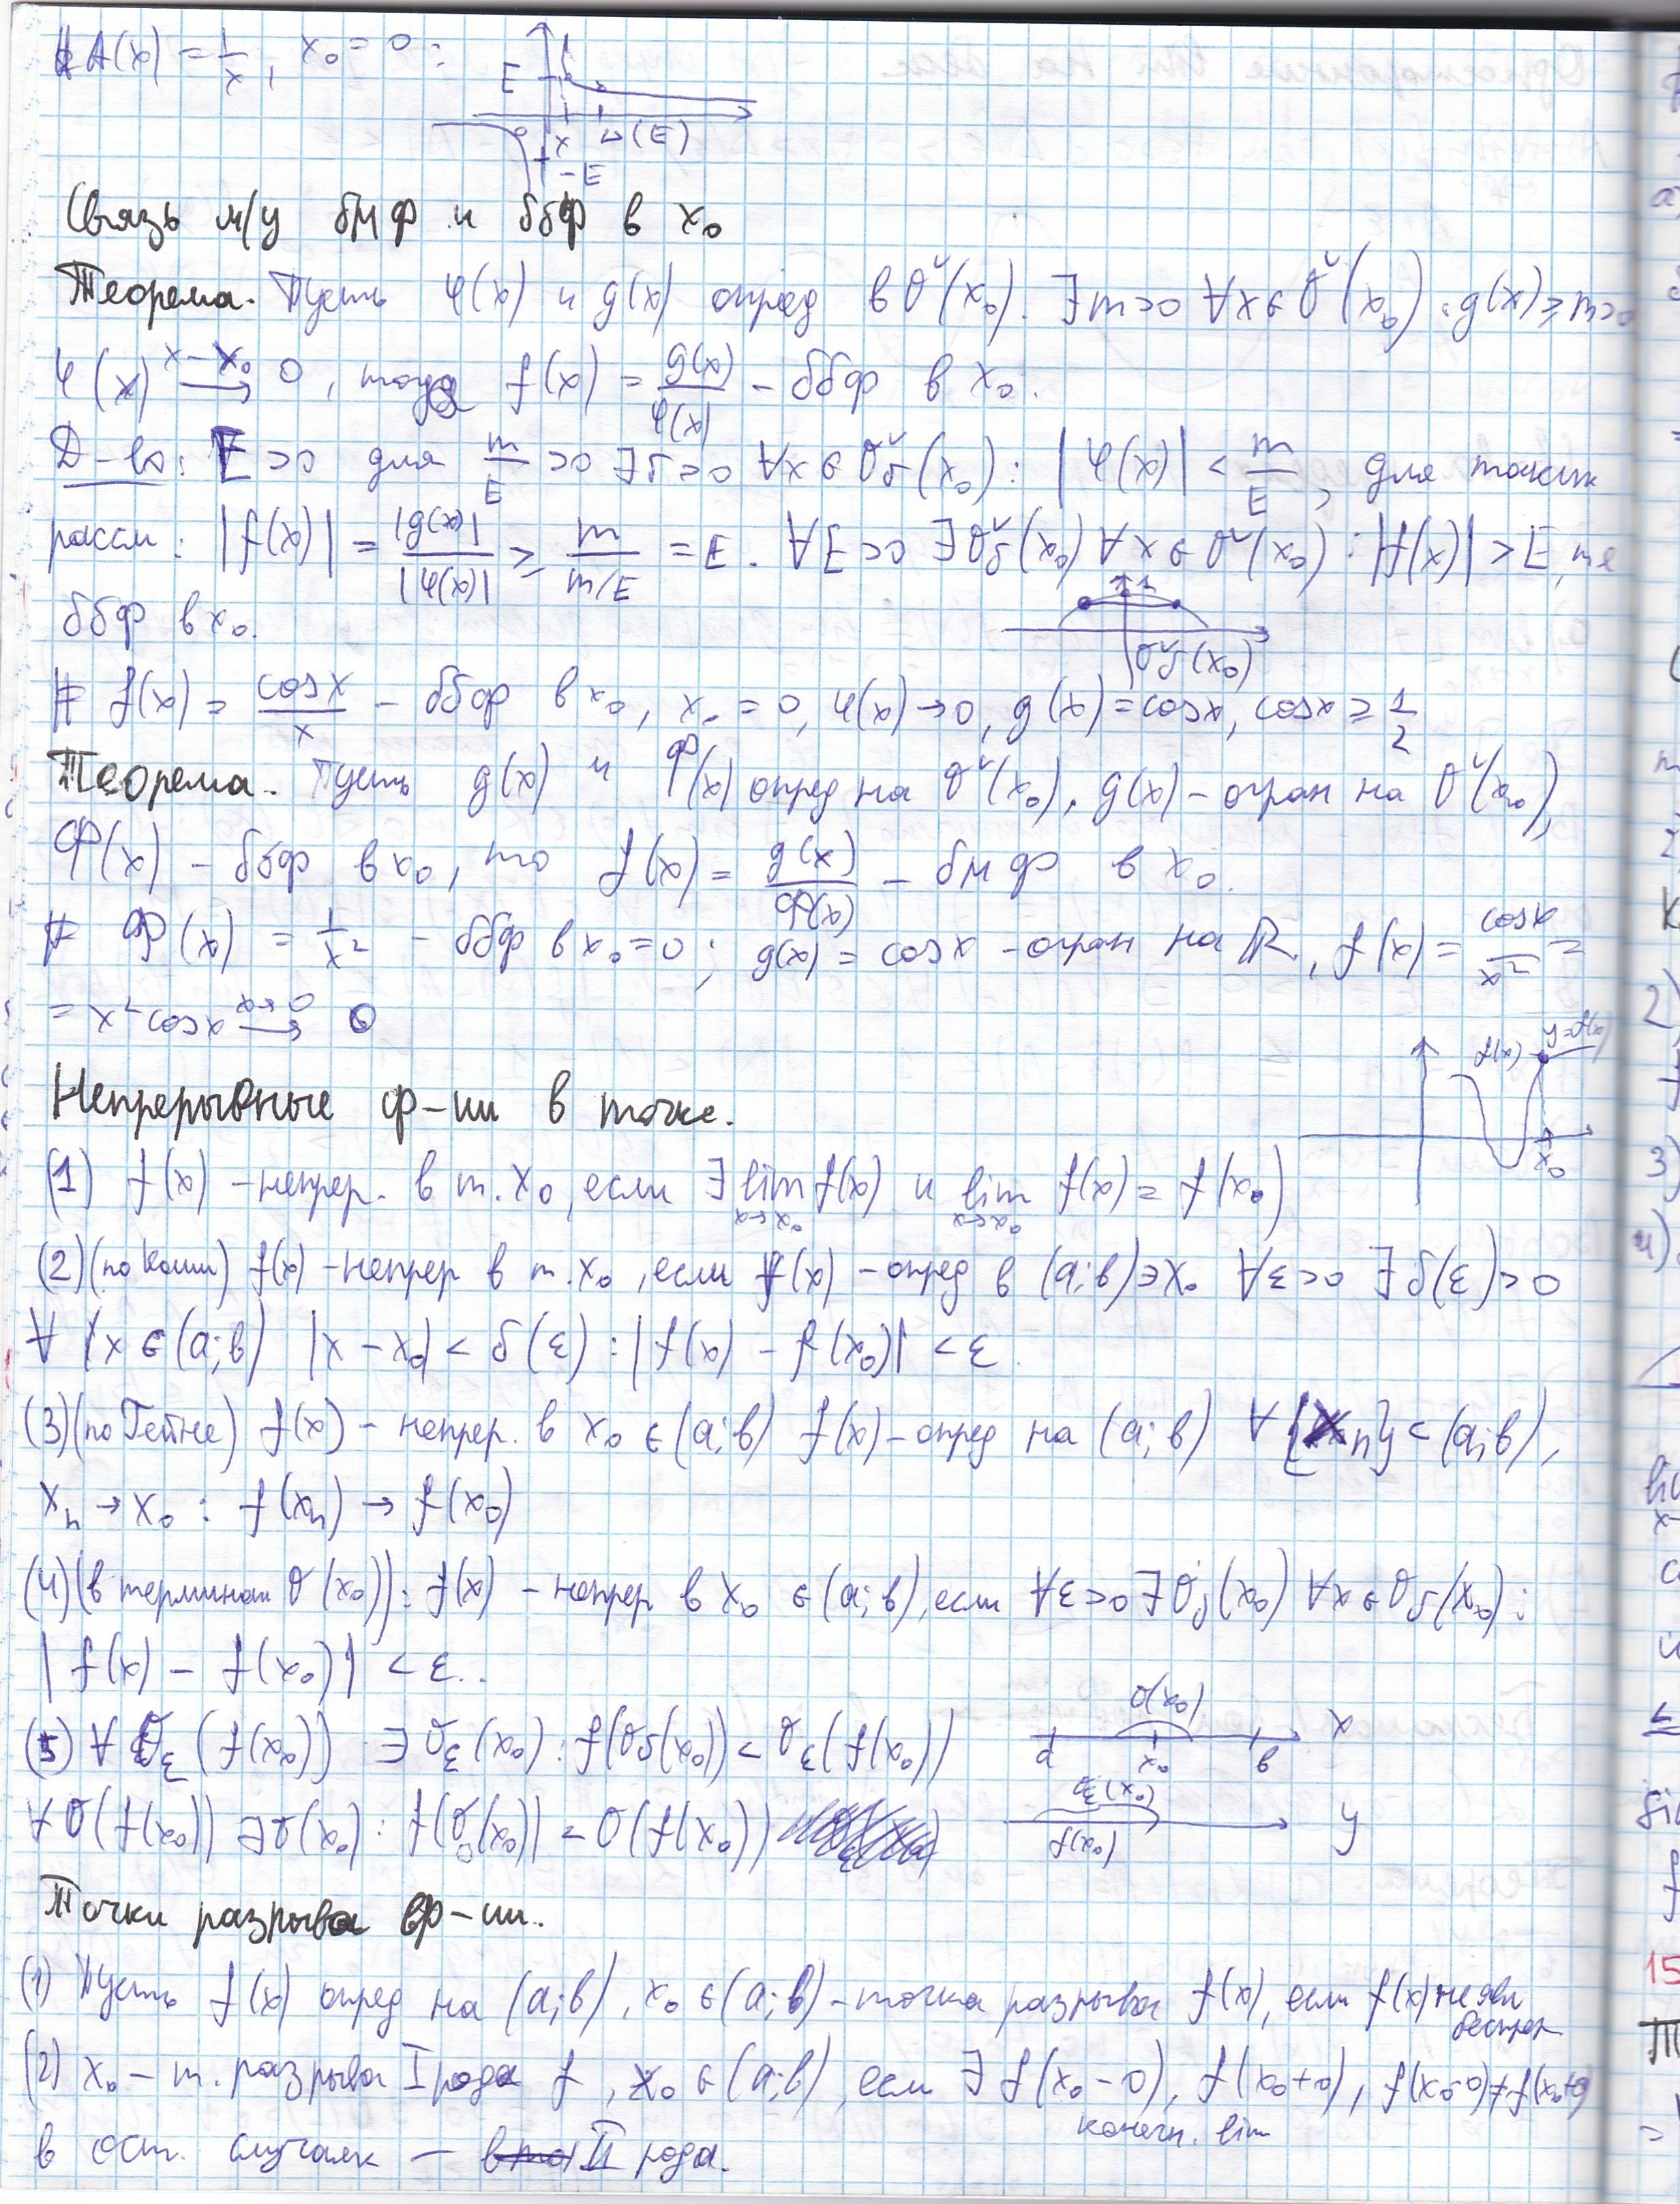 # A(x) = 1/x, x₀ = 0 :
E
x  δ(E)
-E
Связь м/у бмф и ббф в x₀
Теорема. Пусть φ(x) и g(x) опред в Ŏ(x₀). ∃m>0 ∀x∈Ŏ(x₀) : g(x) ≥ m>0
φ(x) →(x→x₀) 0, тогда f(x) = g(x)/φ(x) - ббф в x₀.
Д-во: E>0 для m/E >0 ∃δ>0 ∀x∈Ŏδ(x₀): |φ(x)| < m/E, для таких
рассм: |f(x)| = |g(x)|/|φ(x)| ≥ m/(m/E) = E. ∀E>0 ∃Ŏδ(x₀) ∀x∈Ŏ(x₀): |f(x)|>E, т.е
ббф в x₀.
1
Ŏδ(x₀)
# f(x) = cosx/x - ббф в x₀, x₀ = 0, φ(x)→0, g(x) = cosx, cosx ≥ 1/2
Теорема. Пусть g(x) и Ф(x) опред на Ŏ(x₀), g(x) - огран на Ŏ(x₀),
Ф(x) - ббф в x₀, то f(x) = g(x)/Ф(x) - бмф в x₀.
# Ф(x) = 1/x² - ббф в x₀=0; g(x) = cosx - огран на ℝ, f(x) = cosx/x² =
= x² cosx →(x→0) 0
f(x)  y=f(x)
x₀
Непрерывные ф-ии в точке.
(1) f(x) - непрер. в т. x₀, если ∃ lim(x→x₀) f(x) и lim(x→x₀) f(x) = f(x₀)
(2) (по Коши) f(x) - непрер в т. x₀, если f(x) - опред в (a;b)∋x₀ ∀ε>0 ∃δ(ε)>0
∀x∈(a;b) |x-x₀| < δ(ε) : |f(x) - f(x₀)| < ε
(3) (по Гейне) f(x) - непрер. в x₀ ∈ (a;b) f(x) - опред на (a;b) ∀{xₙ} ⊂ (a;b),
xₙ → x₀ : f(xₙ) → f(x₀)
(4) (в терминах O(x₀)): f(x) - непрер в x₀ ∈ (a;b), если ∀ε>0 ∃Oδ(x₀) ∀x∈Oδ(x₀) :
|f(x) - f(x₀)| < ε..
(5) ∀ Oε(f(x₀)) ∃ Oε(x₀) : f(Oδ(x₀)) ⊂ Oε(f(x₀))
O(x₀)
a  x₀  b  x
∀ O(f(x₀)) ∃O(x₀) : f(O(x₀)) ⊂ O(f(x₀))
f(x₀)  y
Точки разрыва ф-ии.
(1) Пусть f(x) опред на (a;b), x₀ ∈ (a;b) - точка разрыва f(x), если f(x) не явл
непрер
(2) x₀ - т. разрыва I рода f, x₀ ∈ (a;b), если ∃ f(x₀-0), f(x₀+0), f(x₀-0)≠f(x₀+0)
конечн. lim
в ост. случаях - II рода.